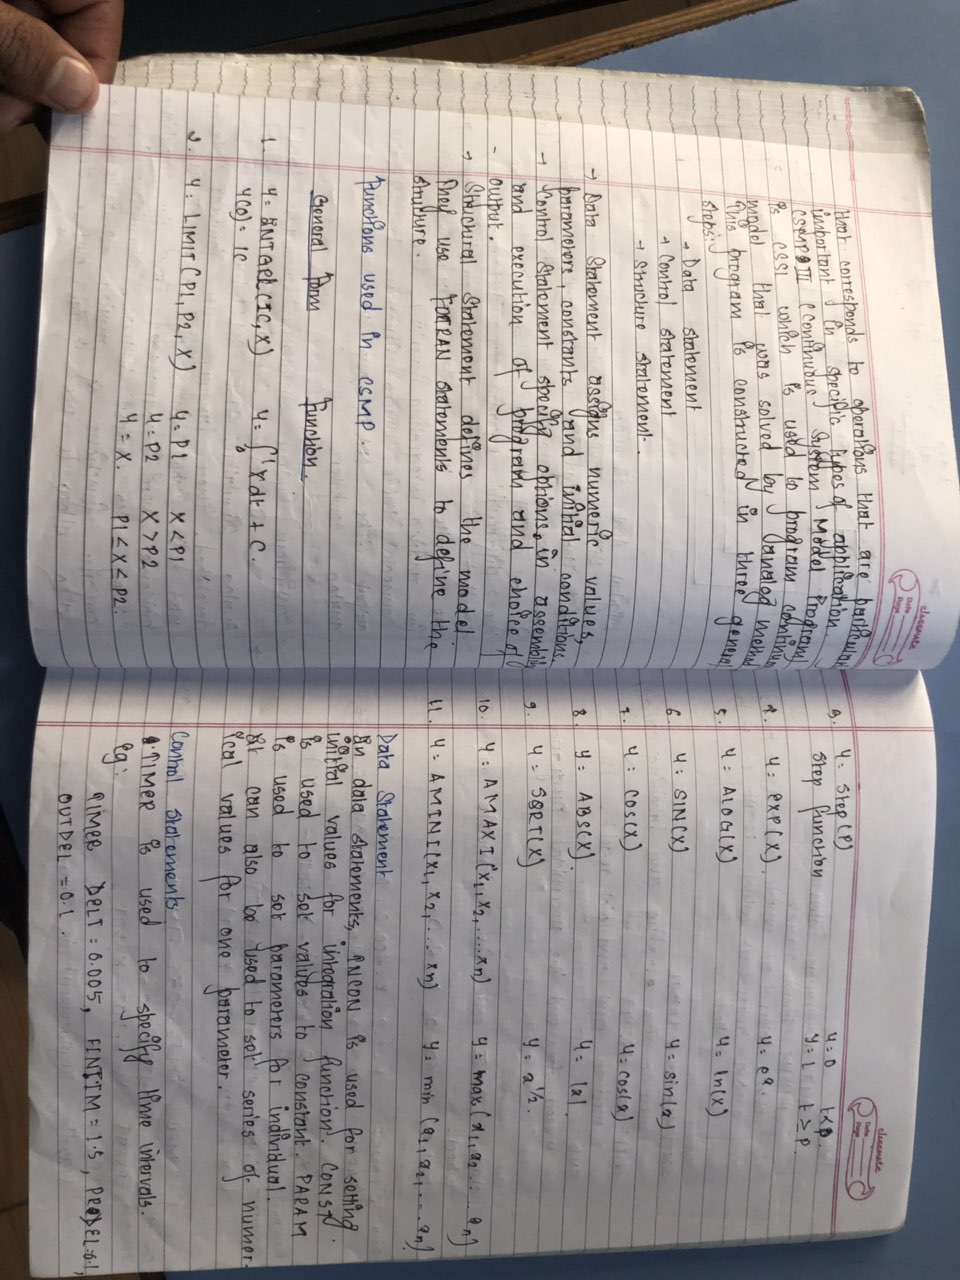 classmate
Date
Page
that corresponds to operations that are particular
important in specific types of application.
CSMP III (Continuous System Model Program)
is CSSL which is used to program continu
model that was solved by analog method
This program is constructed in three general
steps:
→ Data statement
→ Control statement
→ Structure statement.
→ Data Statement assigns numeric values,
parameters, constants and initial conditions.
→ Control Statement specify options in assembly
and execution of program and choice of
output.
→ Structural Statement defines the model.
They use FORTRAN statements to define the
structure.
Functions used in CSMP.
General Form Function.
1. Y = INTGRL(IC,X) Y = ∫ X dt + C.
Y(0) = IC
2. Y = LIMIT(P1,P2,X) Y = P1 X < P1
Y = P2 X > P2
Y = X. P1 < X < P2.
classmate
Date
Page
3. Y = Step(P) Y = 0 t < P.
Step function Y = 1 t ≥ P.
4. Y = EXP(X). Y = eˣ.
5. Y = ALOG(X) Y = ln(X)
6. Y = SIN(X) Y = sin(x)
7. Y = COS(X) Y = cos(x)
8. Y = ABS(X). Y = |x|.
9. Y = SQRT(X) Y = x^1/2.
10. Y = AMAX1(X1, X2, .... Xn) Y = max(x1, x2 .... xn)
11. Y = AMIN1(X1, X2, ... Xn) Y = min (x1, x2, ... xn)
Data Statement
In data statements, INCON is used for setting
initial values for integration function. CONST
is used to set values to constant. PARAM
is used to set parameters for individual.
It can also be used to set series of numer-
ical values for one parameter.
Control Statements
TIMER is used to specify time intervals.
eg:
TIMER DELT = 0.005, FINTIM = 1.5, PRDEL=0.1,
OUTDEL = 0.1.